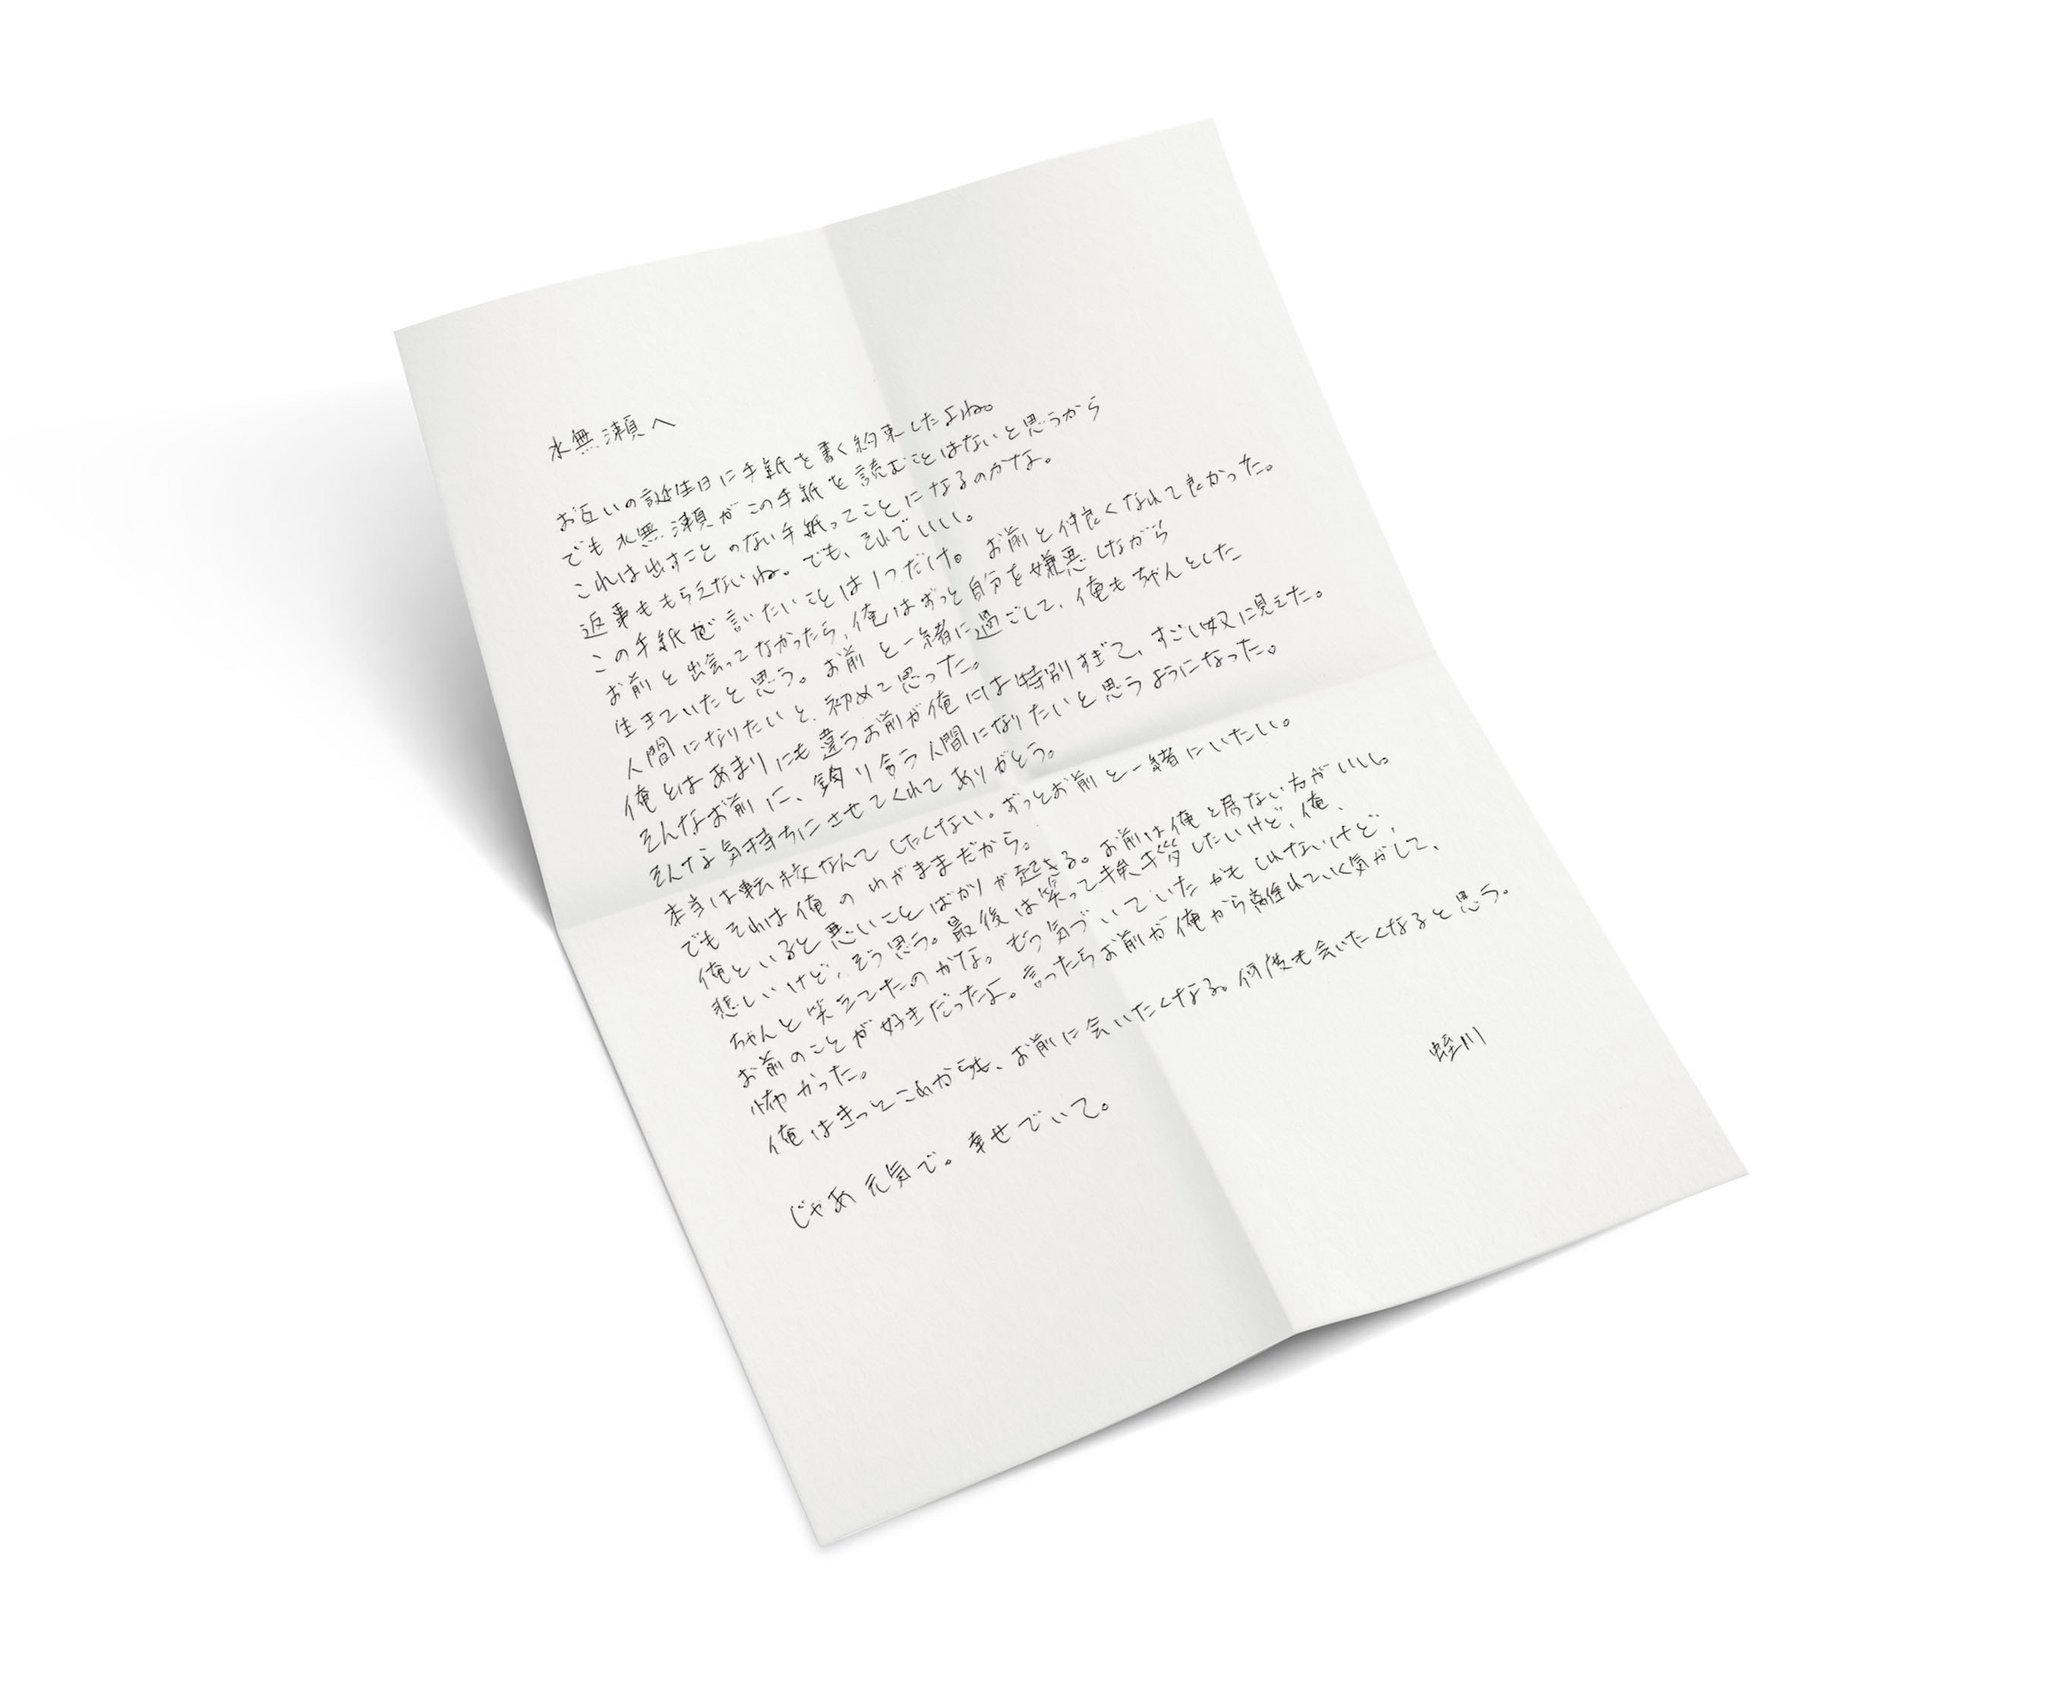 水無瀬へ
お互いの誕生日に手紙を書く約束したよね。
でも水無瀬がこの手紙を読むことはないと思うから
これは出すことのない手紙ってことになるのかな。
返事ももらえないね。でも、それでいい。
この手紙で言いたいことは1つだけ。お前と仲良くなれて良かった。
お前と出会ってなかったら、俺はずっと自分を嫌悪しながら
生きていたと思う。お前と一緒に過ごして、俺もちゃんとした
人間になりたいと、初めて思った。
俺とはあまりにも違うお前が俺には特別すぎて、すごい奴に見えた。
そんなお前に、釣り合う人間になりたいと思うようになった。
そんな気持ちにさせてくれてありがとう。
本当は転校なんてしたくない。ずっとお前と一緒にいたい。
でもそれは俺のわがままだから。
俺といると悪いことばかりが起きる。お前は俺と居ない方がいい。
悲しいけど、そう思う。最後は笑って挨拶したいけど、俺、
ちゃんと笑えてたのかな。もう気づいていたかもしれないけど、
お前のことが好きだったよ。言ったらお前が俺から離れていく気がして、
怖かった。
俺はきっとこれからも、お前に会いたくなる。何度も会いたくなると思う。
じゃあ元気で。幸せでいて。
蛭川